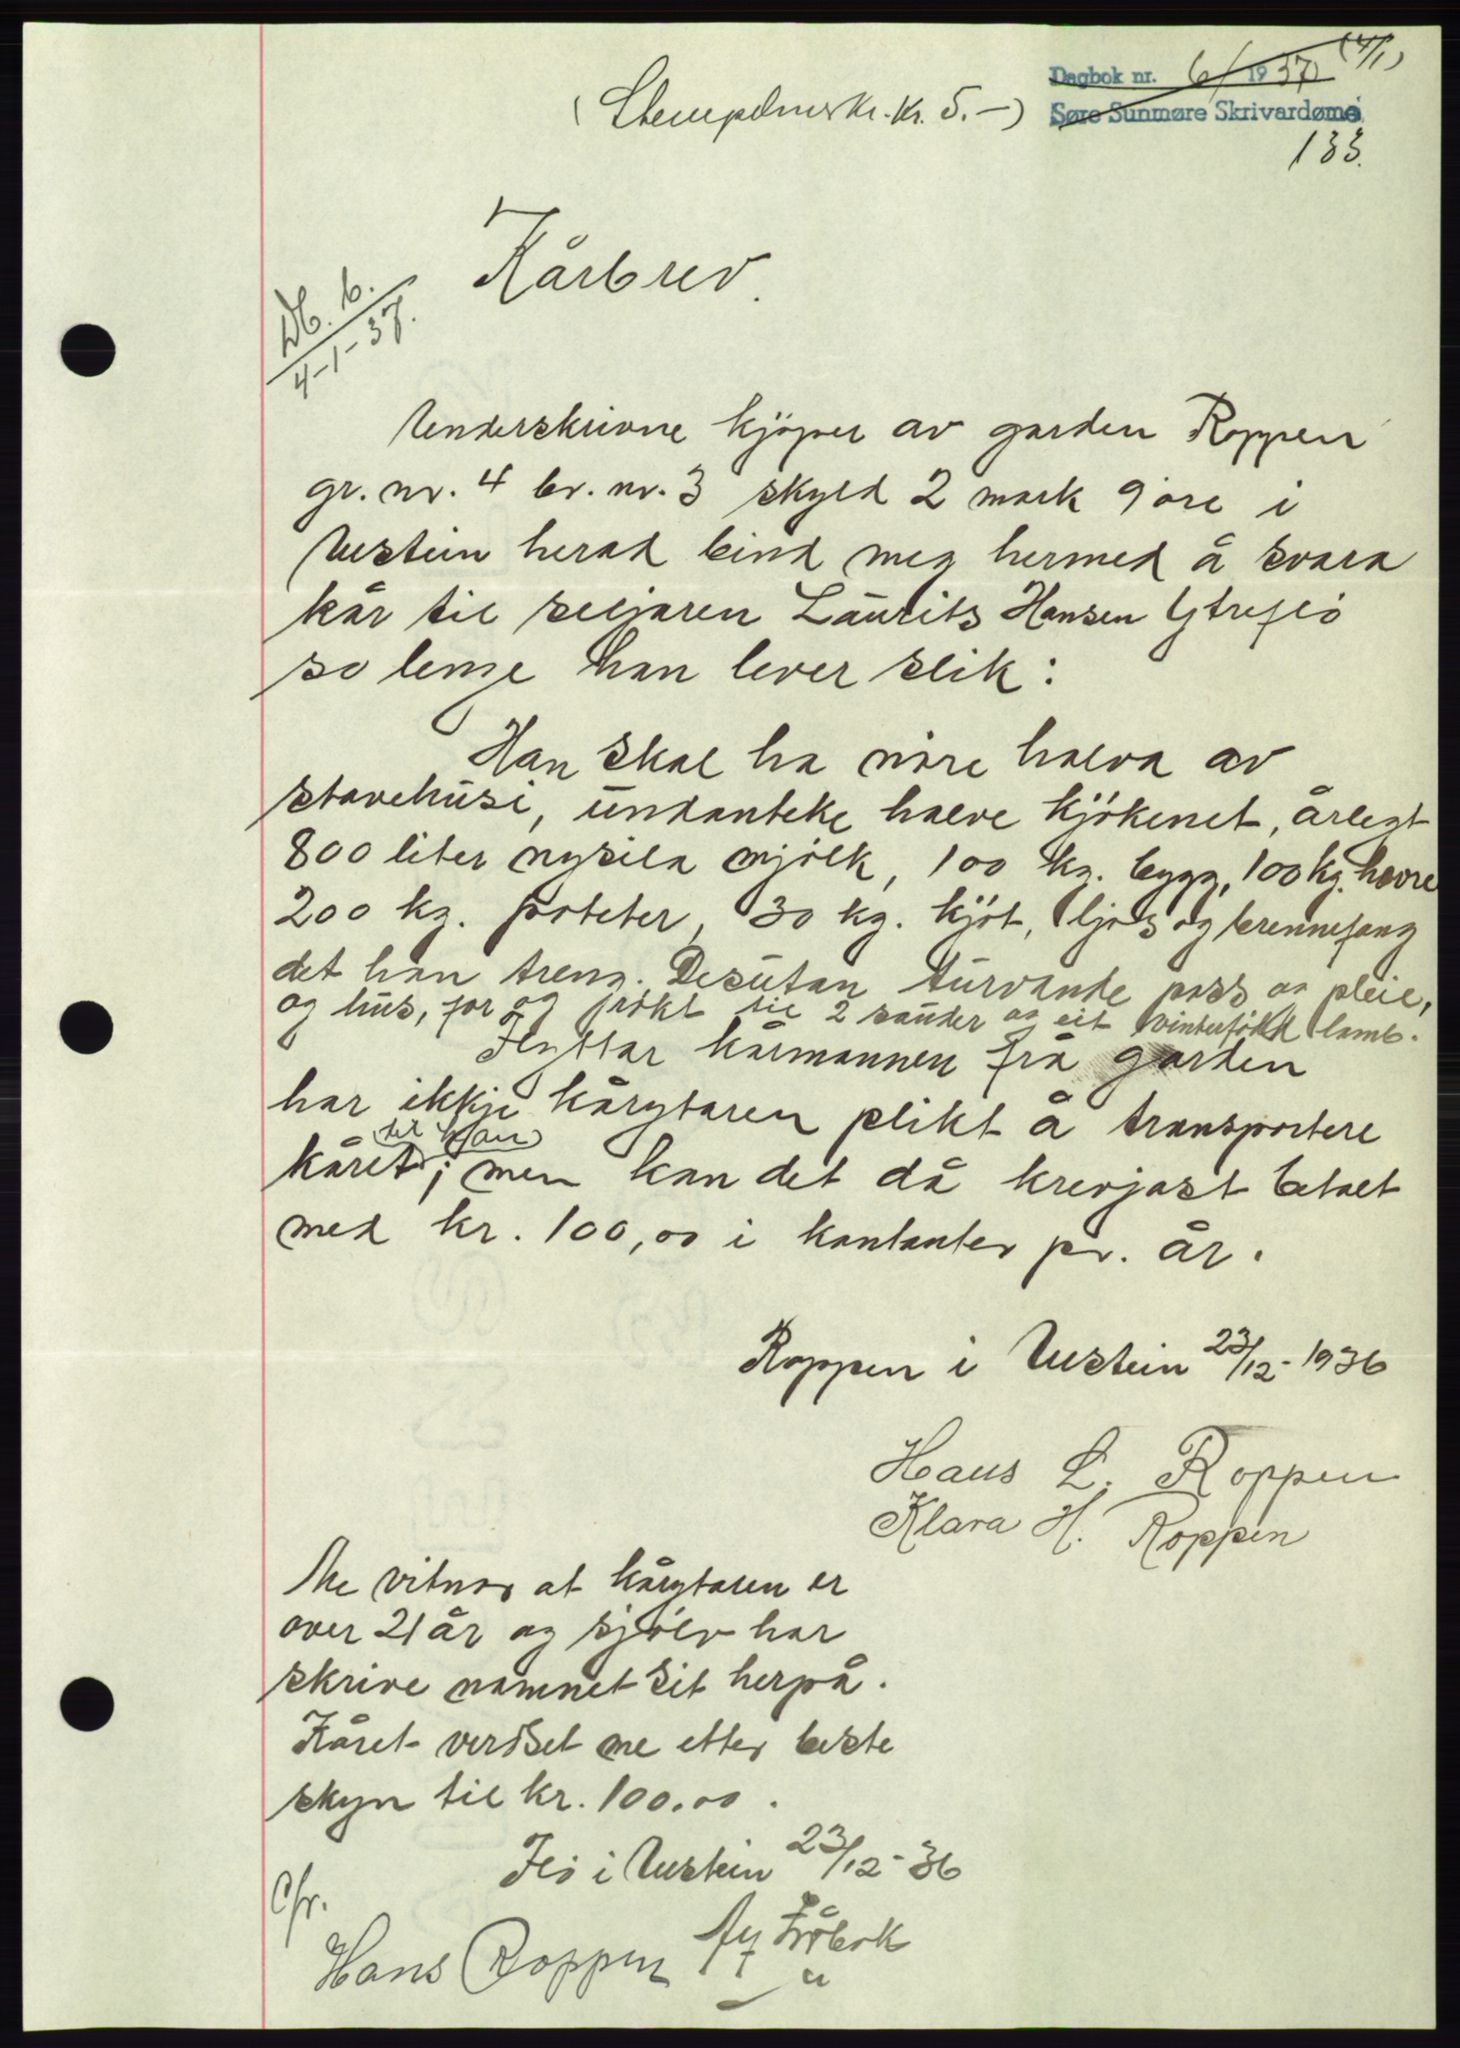 Dagbok nr. 6/1937 (4/1)
(Stempelmerk. kr. 5.-)
Søre Sunmøre Skrivardøme
133.
Kårbrev.
Db. 6.
4-1-37.
Underskrivne kjöper av garden Roppen
gr. nr. 4 br. nr. 3 skyld 2 mark 9 öre i
Ulstein herad bind meg hermed å svara
kår til seljaren Laurits Hansen Ytreflö
so lenge han lever slik:
Han skal ha nöre halva av
stovehuset, undanteke halve kjökenet, årlegt
800 liter nysila mjölk, 100 kg. bygg, 100 kg. havre
200 kg. poteter, 30 kg. kjöt, ljos og brennefang
det han treng. Desutan turvande pass og pleie,
og hus, for og rökt til 2 sauder og eit vinterfödd lamb.
Flyttar kårmannen frå garden
har ikkje kårytaren plikt å transportere
kåret til han; men kan det då krevjast betalt
med kr. 100,00 i kontanter pr. år.
Roppen i Ulstein 23/12-1936
Hans L. Roppen
Klara H. Roppen
Me vitnar at kårytaren er
over 21 år og sjölv har
skrive namnet sit herpå.
Kåret verdset me etter beste
skyn til kr. 100.00.
Flö i Ulstein 23/12-36
Hans Roppen